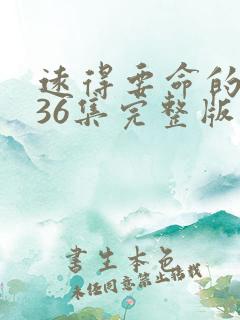 远得要命的
36集完整版
书生本色
未经同意禁止转载